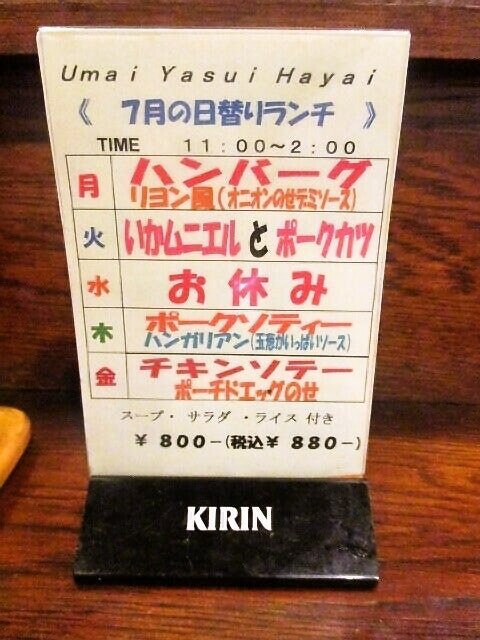 Umai Yasui Hayai
《 7月の日替りランチ 》
TIME 11:00～2:00
月 ハンバーグ
リヨン風(オニオンのせデミソース)
火 いかムニエルとポークカツ
水 お休み
木 ポークソティー
ハンガリアン(玉葱がいっぱいソース)
金 チキンソテー
ポーチドエッグのせ
スープ・サラダ・ライス付き
￥800-(税込￥880-)
KIRIN